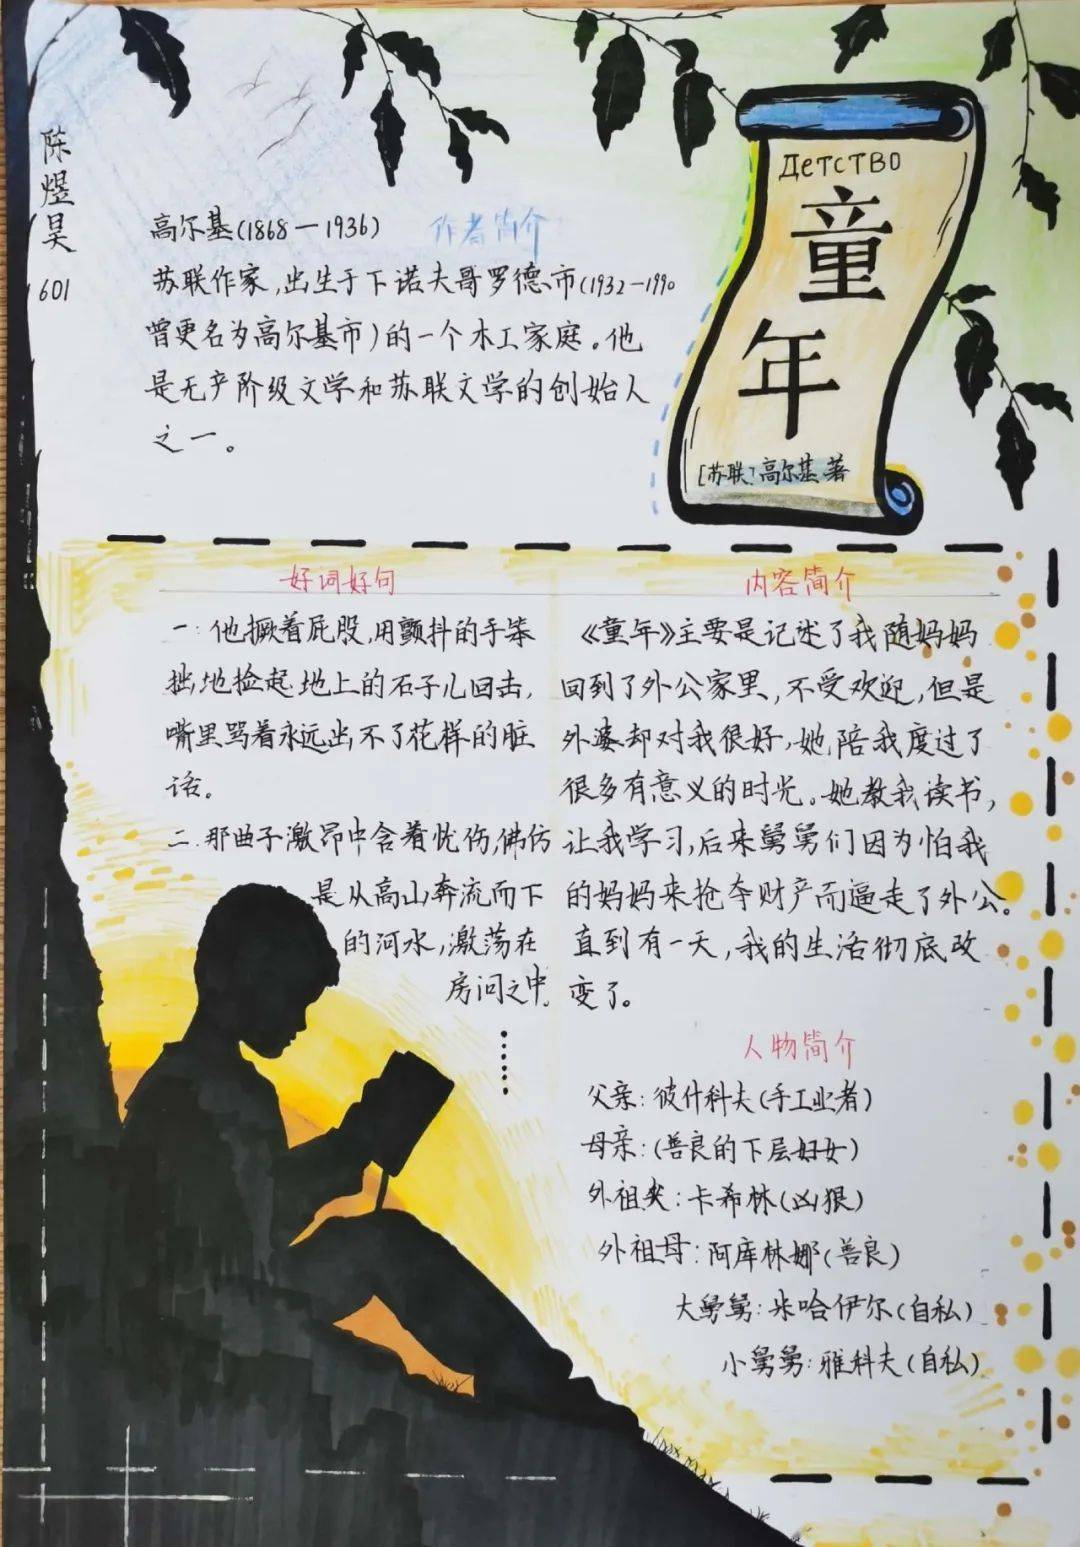 陈煜昊
601
Детство
童年
[苏联]高尔基 著
高尔基(1868—1936)
作者简介
苏联作家,出生于下诺夫哥罗德市(1932—1990
曾更名为高尔基市)的一个木工家庭。他
是无产阶级文学和苏联文学的创始人
之一。
好词好句
一:他撅着屁股,用颤抖的手笨
拙地捡起地上的石子儿回击,
嘴里骂着永远出不了花样的脏
话。
二.那曲子激昂中含着忧伤,佛仿
是从高山奔流而下
的河水,激荡在
房间之中.
……
内容简介
《童年》主要是记述了我随妈妈
回到了外公家里,不受欢迎,但是
外婆却对我很好,她陪我度过了
很多有意义的时光。她教我读书,
让我学习,后来舅舅们因为怕我
的妈妈来抢夺财产而逼走了外公。
直到有一天,我的生活彻底改
变了。
人物简介
父亲:彼什科夫(手工业者)
母亲:(善良的下层妇女)
外祖父:卡希林(凶狠)
外祖母:阿库林娜(善良)
大舅舅:米哈伊尔(自私)
小舅舅:雅科夫(自私)